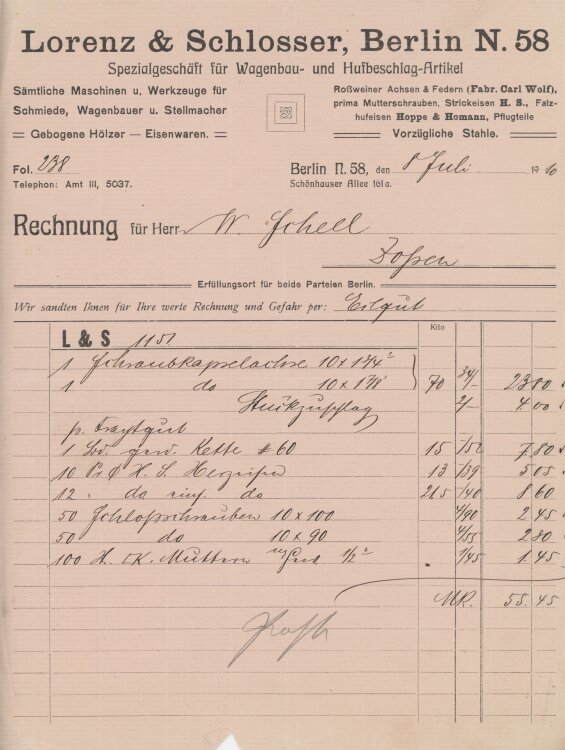 Lorenz & Schlosser, Berlin N. 58
Spezialgeschäft für Wagenbau- und Hufbeschlag-Artikel
Sämtliche Maschinen u. Werkzeuge für
Schmiede, Wagenbauer u. Stellmacher
Gebogene Hölzer — Eisenwaren.
Roßweiner Achsen & Federn (Fabr. Carl Wolf),
prima Mutterschrauben, Strickeisen H. S., Falz-
hufeisen Hoppe & Homann, Pflugteile
Vorzügliche Stahle.
Fol. 238
Telephon: Amt III, 5037.
Berlin N. 58, den 8 Juli 1910
Schönhauser Allee 161a.
Rechnung für Herrn W. Schell
Zossen
Erfüllungsort für beide Parteien Berlin.
Wir sandten Ihnen für Ihre werte Rechnung und Gefahr per: Eilgut
Kilo
L & S 1151
1 Schraubkapselachse 10 x 1 3/4"
1 do 10 x 1 7/8" 70 34/- 23 80
Stückzuschlag 2/- 4 00
p. Frachtgut
1 Kette # 60 15 /52 7.80
10 H. S. 13 /39 5 05
12 do do 21.5 /40 8 60
50 Schloßschrauben 10 x 100 4/90 2 45
50 do 10 x 90 4/55 2 30
100 Muttern 1/2" 1/45 1.45
MK. 55.45